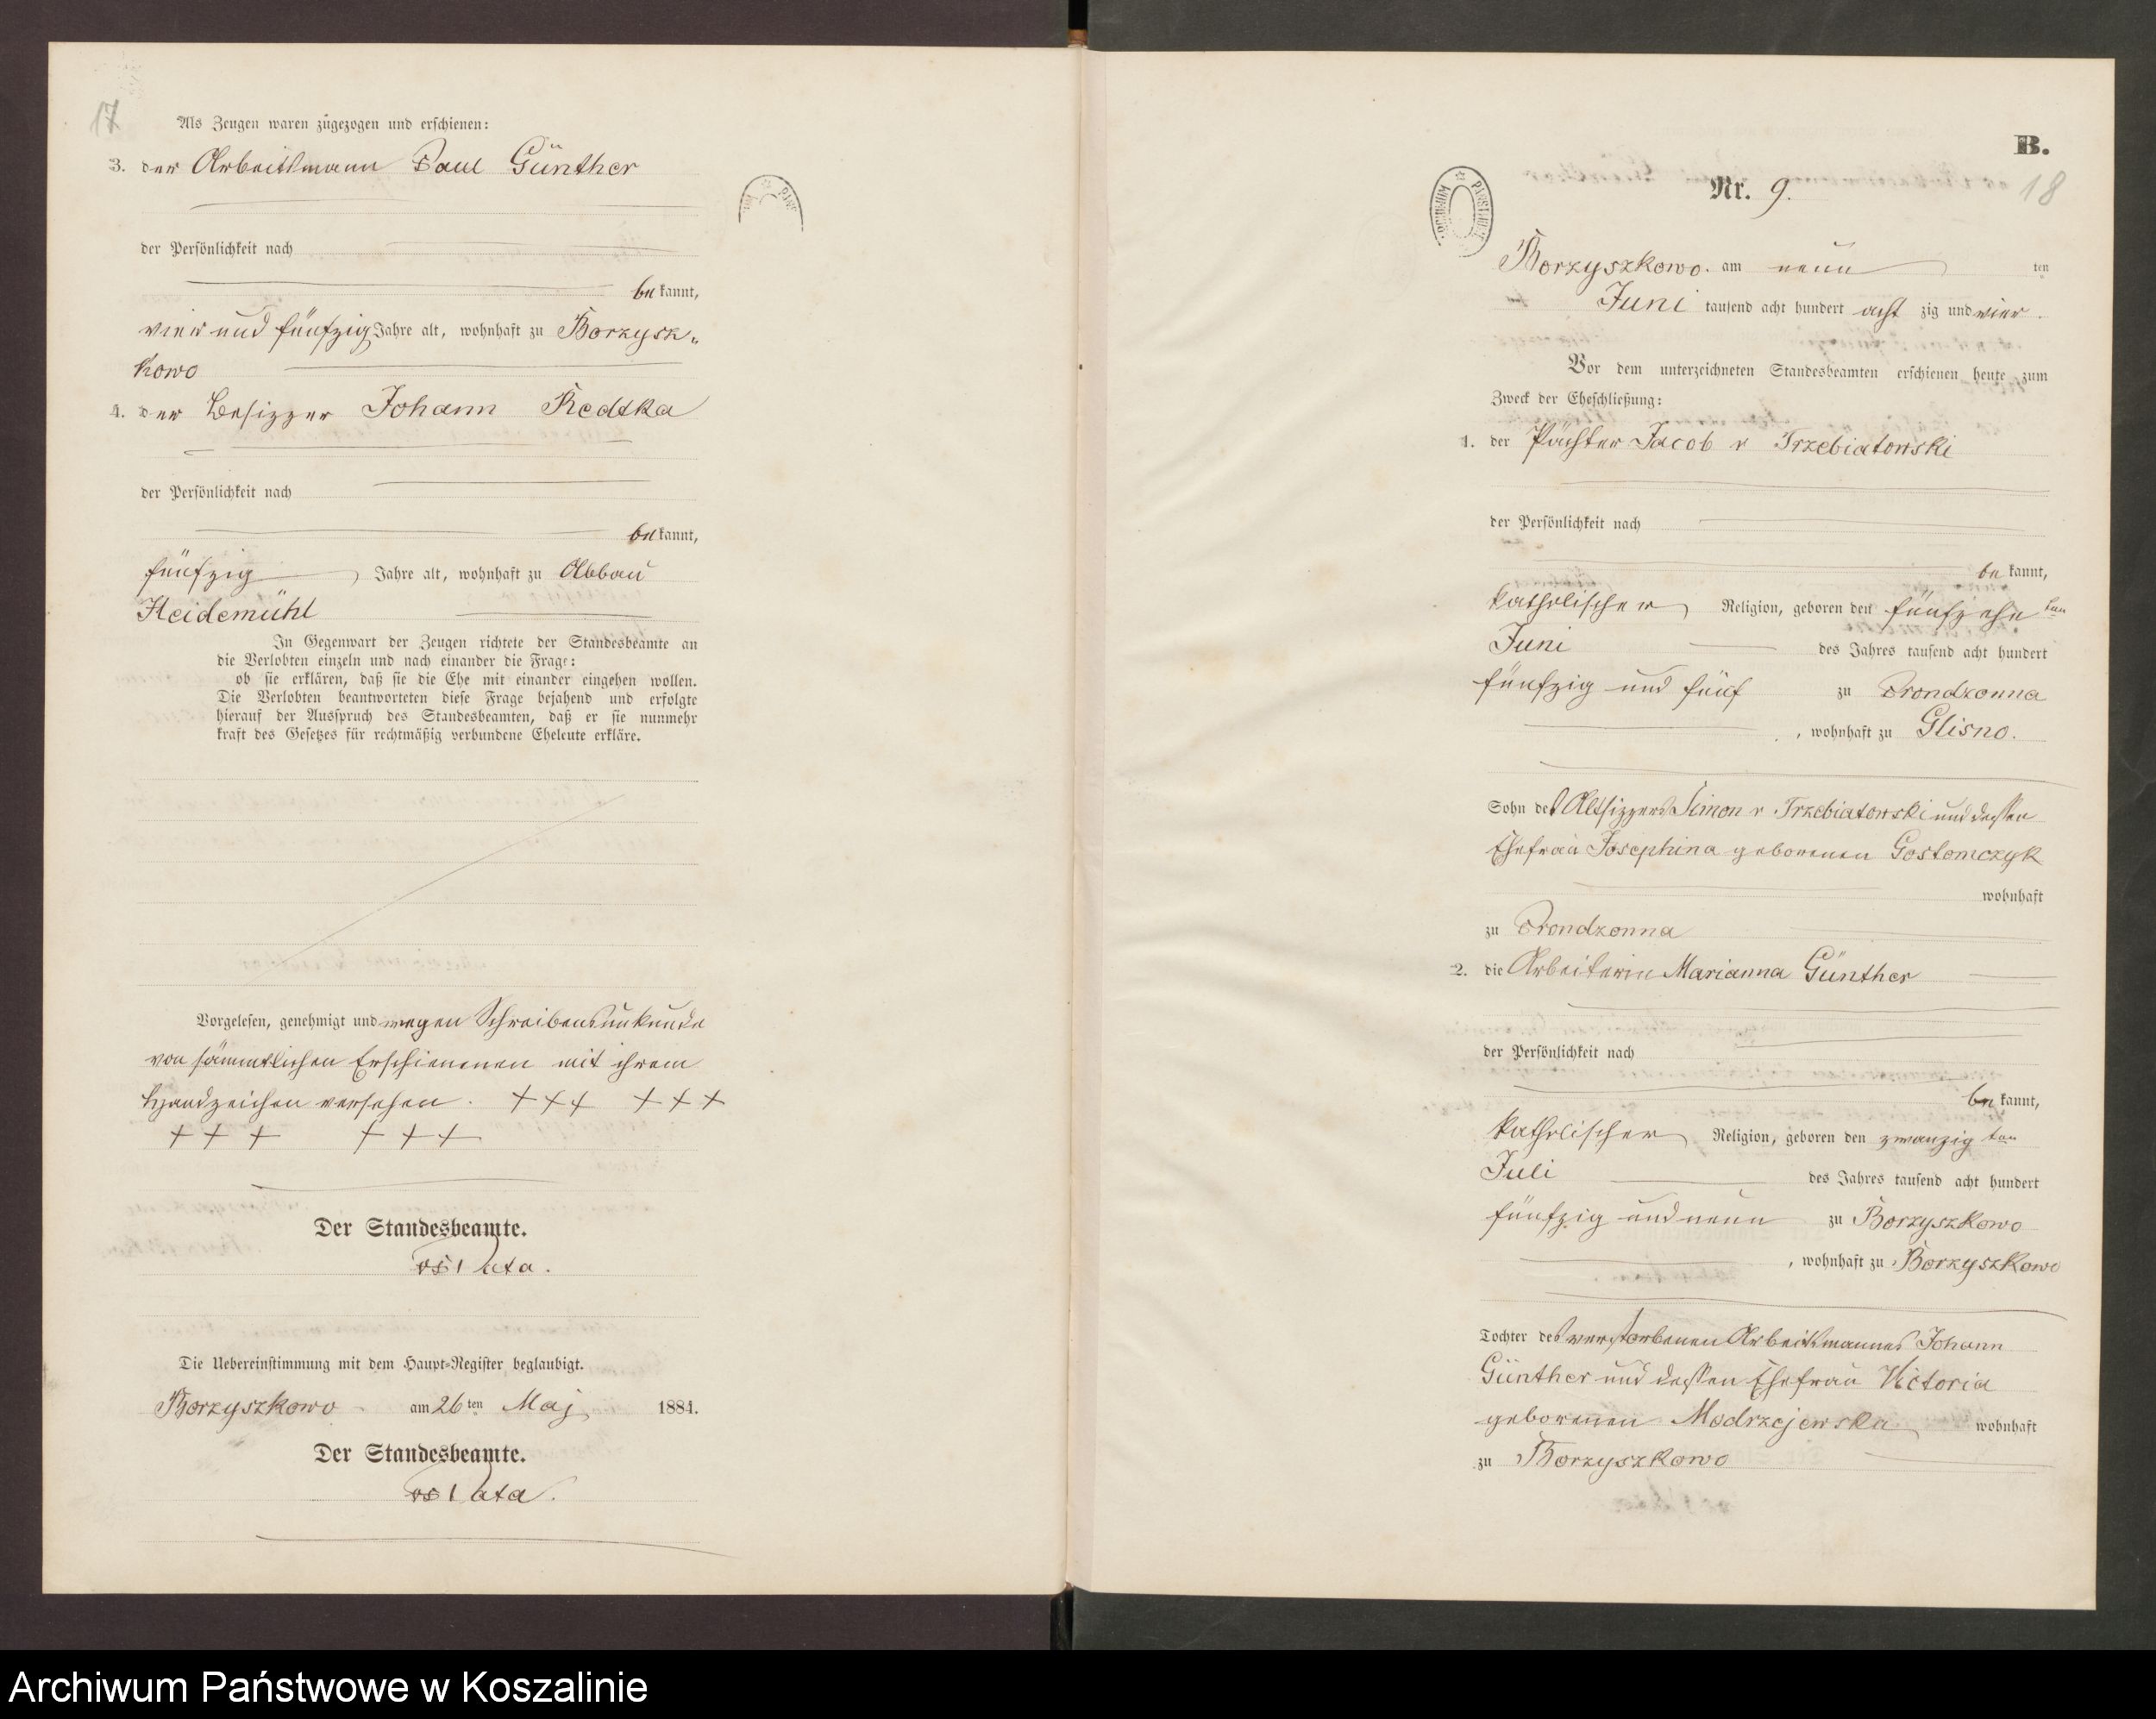 17
Als Zeugen waren zugezogen und erschienen:
3. der Arbeitsmann Paul Günther
der Persönlichkeit nach
bekannt,
vier und fünfzig Jahre alt, wohnhaft zu Borzysz„
kowo
4. der Besizzer Johann Redtka
der Persönlichkeit nach
bekannt,
fünfzig Jahre alt, wohnhaft zu Abbau
Heidemühl
In Gegenwart der Zeugen richtete der Standesbeamte an
die Verlobten einzeln und nach einander die Frage:
ob sie erklären, daß sie die Ehe mit einander eingehen wollen.
Die Verlobten beantworteten diese Frage bejahend und erfolgte
hierauf der Ausspruch des Standesbeamten, daß er sie nunmehr
kraft des Gesetzes für rechtmäßig verbundene Eheleute erkläre.
Vorgelesen, genehmigt und wegen Schreibensunkunde
von sämmtlichen Erschienenen mit ihrem
Handzeichen versehen. +++ +++
+++ +++
Der Standesbeamte.
Die Uebereinstimmung mit dem Haupt-Register beglaubigt.
Borzyszkowo am 26ten Maj 1884.
Der Standesbeamte.
B.
18
Nr. 9.
Borzyszkowo am neun ten
Juni tausend acht hundert acht zig und vier.
Vor dem unterzeichneten Standesbeamten erschienen heute zum
Zweck der Eheschließung:
1. der Pächter Jacob v Trzebiatowski
der Persönlichkeit nach
bekannt,
katholischer Religion, geboren den fünfzehn ten
Juni des Jahres tausend acht hundert
fünfzig und fünf zu Prondzonna
, wohnhaft zu Glisno.
Sohn des Altsizzers Simon v Trzebiatowski und dessen
Ehefrau Josephina geborenen Gostomczyk
wohnhaft
zu Prondzonna
2. die Arbeiterin Marianna Günther
der Persönlichkeit nach
bekannt,
katholischer Religion, geboren den zwanzig ten
Juli des Jahres tausend acht hundert
fünfzig und neun zu Borzyszkowo
, wohnhaft zu Borzyszkowo
Tochter des verstorbenen Arbeitsmannes Johann
Günther und dessen Ehefrau Victoria
geborenen Modrzejewska wohnhaft
zu Borzyszkowo
Archiwum Państwowe w Koszalinie